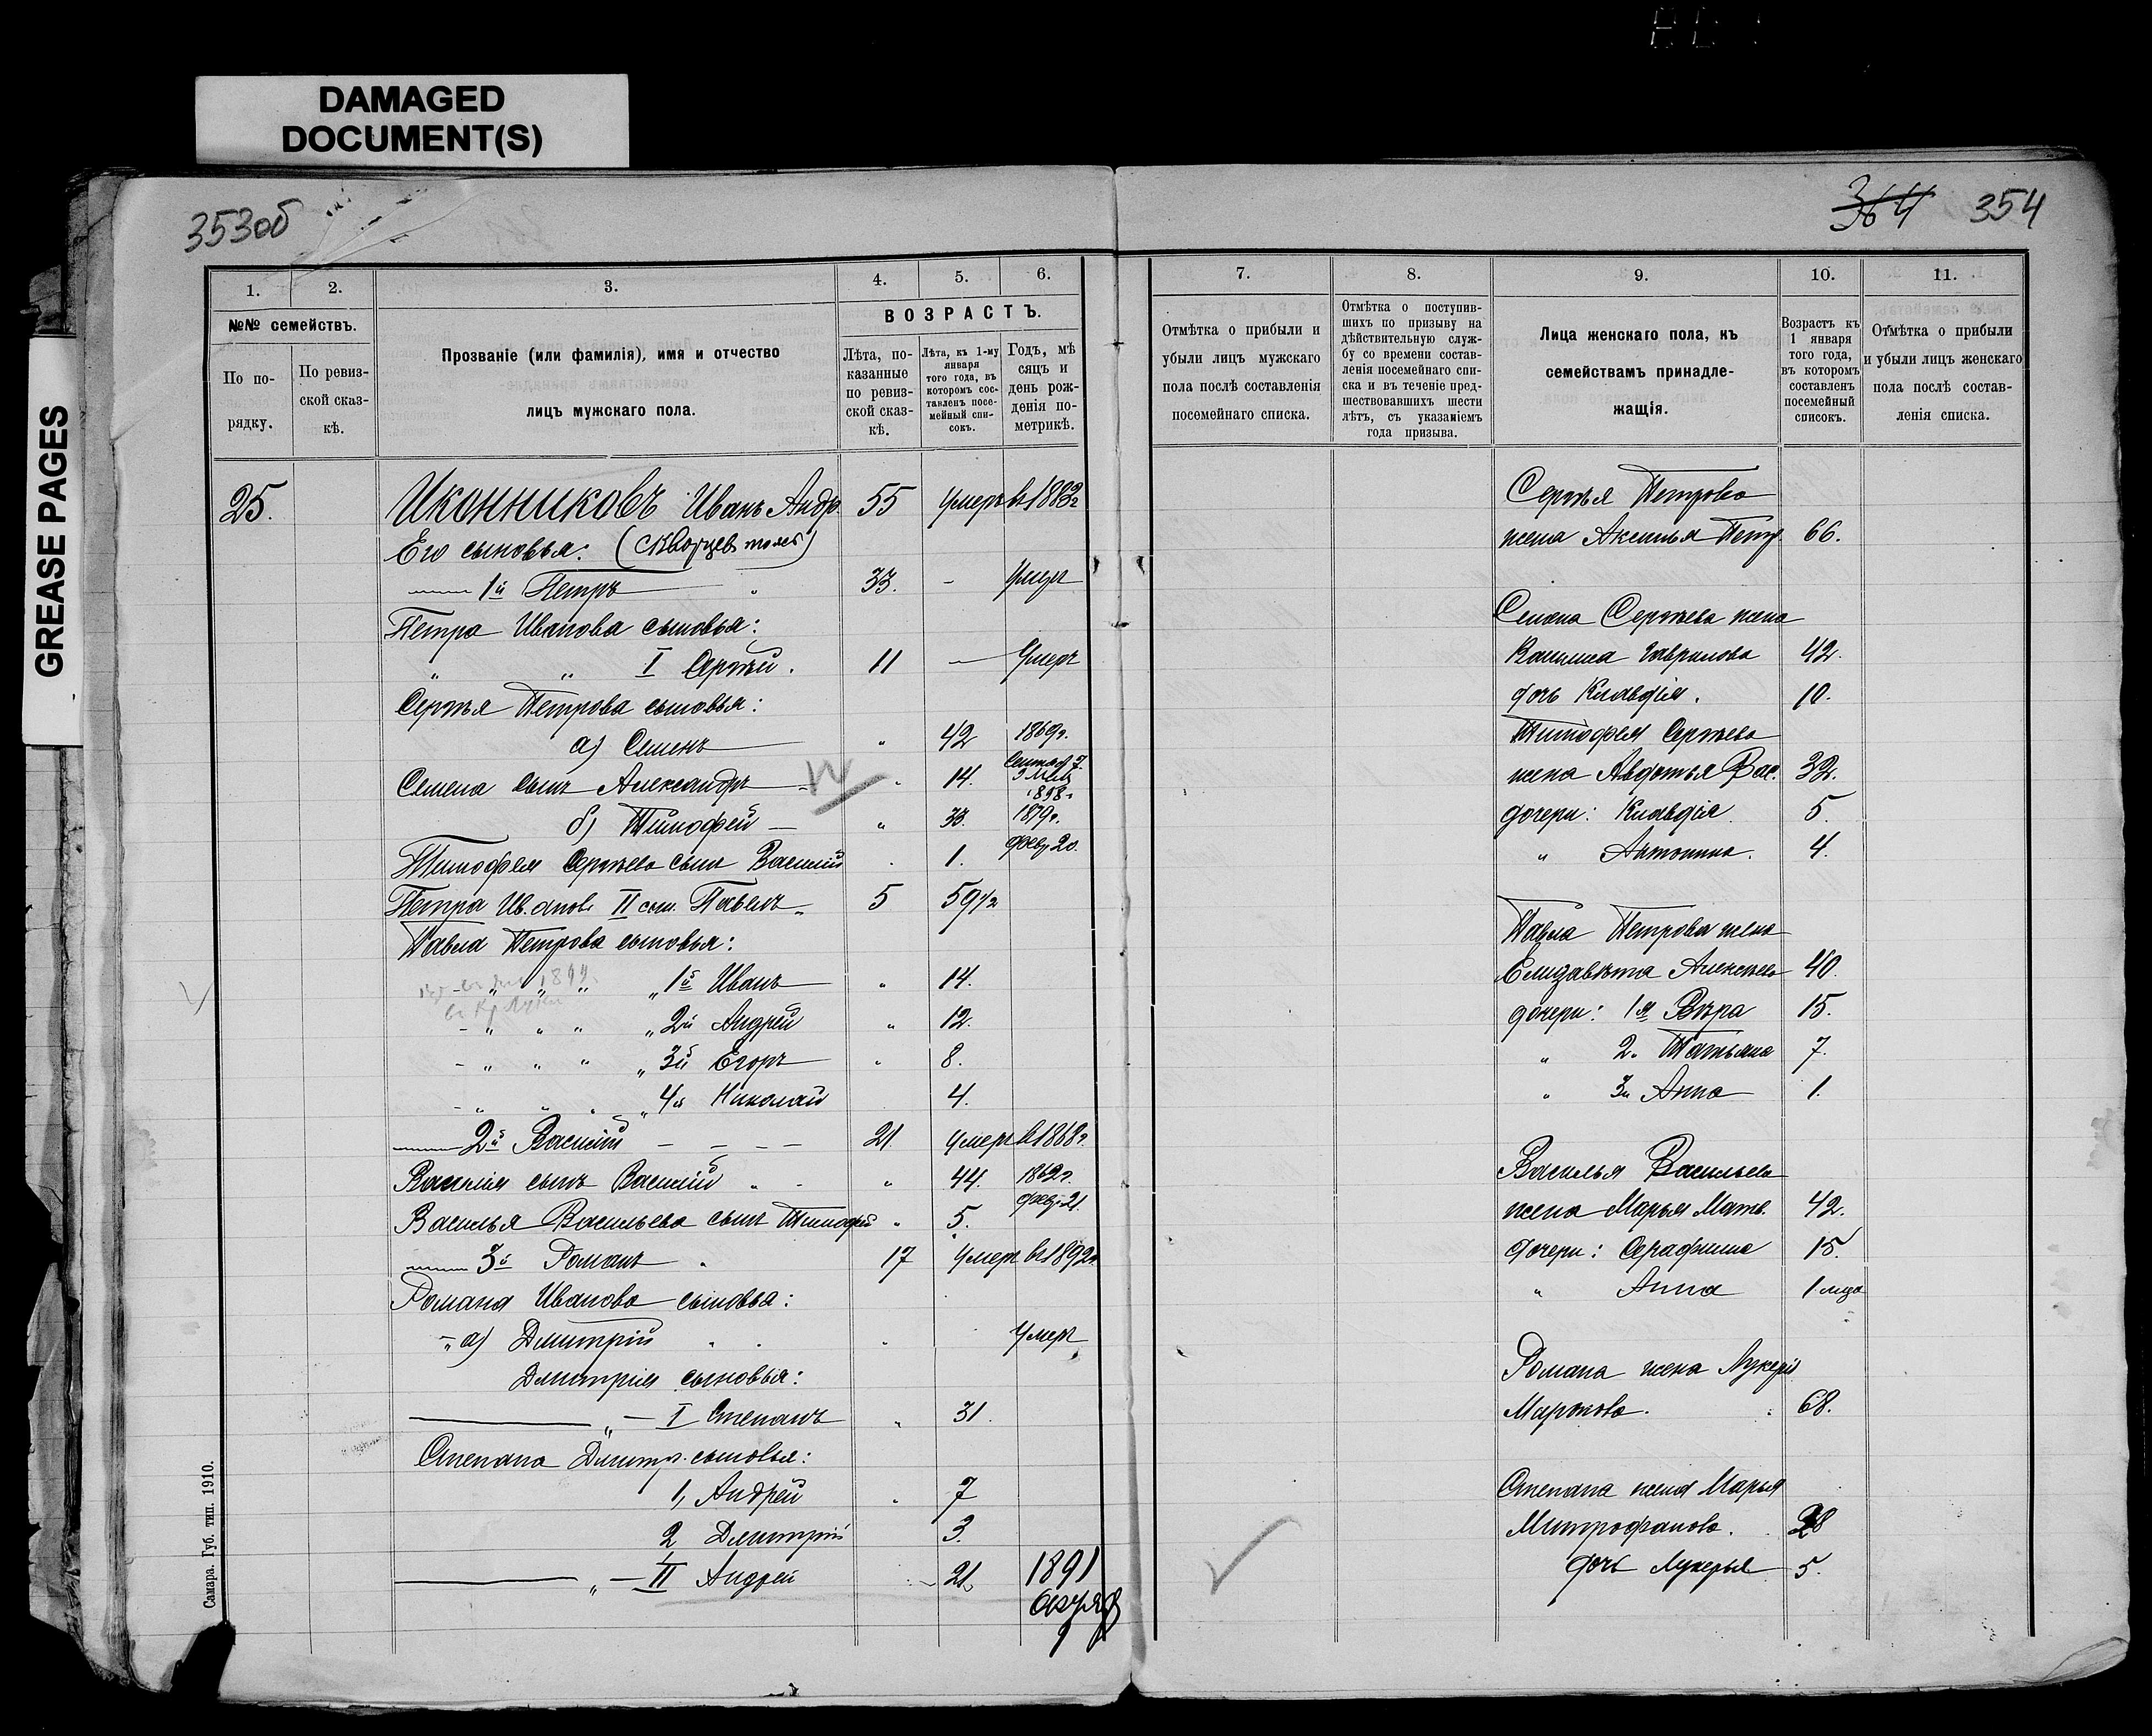 DAMAGED
DOCUMENT(S)
GREASE PAGES
353об
364 354
1.
2.
3.
4.
5.
6.
№№ семействъ.
ВОЗРАСТЪ.
По по-
рядку.
По ревиз-
ской сказ-
кѣ.
Прозваніе (или фамилія), имя и отчество
лицъ мужскаго пола.
Лѣта, по-
казанные
по ревиз-
ской сказ-
кѣ.
Лѣта, къ 1-му
января
того года, въ
которомъ сос-
тавленъ посе-
мейный спи-
сокъ.
Годъ, мѣ
сяцъ и
день рож-
денія по-
метрикѣ.
25.
Иконниковъ Иванъ Андр. 55 Умеръ въ 1883г
Его сыновья: (Скворцев тоже)
1й Петръ 33. - Умеръ
Петра Иванова сыновья:
" " I Сергѣй. 11 — Умеръ
Сергѣя Петрова сыновья:
а) Семенъ " 42 1869г.
Семена сынъ Александръ " 14. 1898г
б) Тимофей — " 33. 1879г.
Тимофея Сергѣева сынъ Василій 1. февр 20.
Петра Иванов. II сын. Павелъ 5 59 1/2
Павла Петрова сыновья:
" " " 1й Иванъ " 14.
" " " 2й Андрей " 12.
" " " 3й Егоръ " 8.
" " " 4й Николай 4.
2й Василій - - - - 21 Умеръ въ 1868г.
Василія сынъ Василій " - " 44. 1862г.
Василья Васильева сынъ Тимофей " 5. февр 21.
3й Романъ " 17 Умеръ въ 1892г.
Романа Иванова сыновья:
а) Дмитрій " " Умеръ
Дмитрія сыновья:
" — I Степанъ " 31.
Степана Дмитр. сыновья:
1, Андрей " 7
2 Дмитрій 3.
" — II Андрей 21, 1891
Самара. Губ. тип. 1910.
7.
8.
9.
10.
11.
Отмѣтка о прибыли и
убыли лицъ мужскаго
пола послѣ составленія
посемейнаго списка.
Отмѣтка о поступив-
шихъ по призыву на
дѣйствительную служ-
бу со времени состав-
ленія посемейнаго спи-
ска и въ теченіе пред-
шествовавшихъ шести
лѣтъ, съ указаніемъ
года призыва.
Лица женскаго пола, къ
семействамъ принадле-
жащія.
Возрастъ къ
1 января
того года,
въ которомъ
составленъ
посемейный
списокъ.
Отмѣтка о прибыли
и убыли лицъ женскаго
пола послѣ состав-
ленія списка.
Сергѣя Петрова
жена Аксинья Петр. 66.
Семена Сергѣева жена
Гаврилова 42.
дочь Клавдія. 10.
Тимофея Сергѣева
жена Авдотья Вас. 32.
дочери: Клавдія. 5.
" Антонина. 4.
Павла Петрова жена
Елизавѣта Алексѣева 40.
дочери: 1я Вѣра 15.
" 2. Татьяна 7.
" 3я Анна 1.
Василья Васильева
жена Марья Матв. 42.
дочери: Серафима 15.
" Анна 1 мца
Романа жена Лукерія
Маркова. 68.
Степана жена Марья
Митрофанова. 28
дочь Лукерья 5.